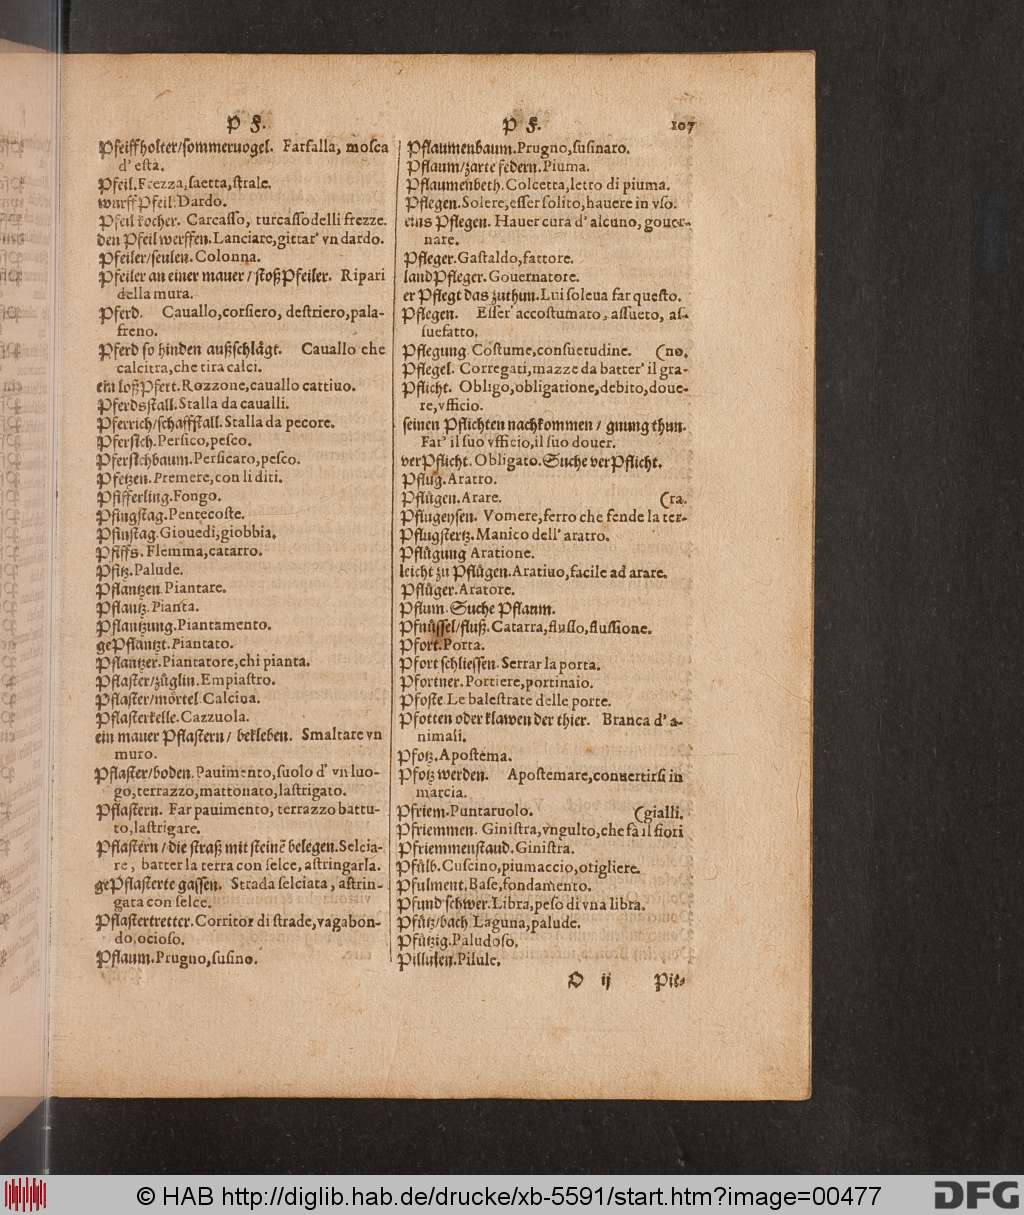 P F.
Pfeiffholter/sommeruogel. Farfalla, mosca
d' està.
Pfeil. Frezza, saetta, strale.
wurff Pfeil. Dardo.
Pfeil kocher. Carcasso, turcasso delli frezze.
den Pfeil werffen. Lanciare, gittar' vn dardo.
Pfeiler/seulen. Colonna.
Pfeiler an einer mauer / stoß Pfeiler. Ripari
della mura.
Pferd. Cauallo, corsiero, destriero, pala-
freno.
Pferd so hinden außschlågt. Cauallo che
calcitra, che tira calci.
ein loß Pfert. Rozzone, cauallo cattiuo.
Pferdsstall. Stalla da caualli.
Pferrich/schaffstall. Stalla da pecore.
Pfersich. Persico, pesco.
Pfersichbaum. Persicaro, pesco.
Pfetzen. Premere, con li diti.
Pfifferling. Fongo.
Pfingstag. Pentecoste.
Pfinstag. Giouedi, giobbia.
Pfiffs. Flemma, catarro.
Pfitz. Palude.
Pflantzen. Piantare.
Pflantz. Pianta.
Pflantzung. Piantamento.
gePflantzt. Piantato.
Pflantzer. Piantatore, chi pianta.
Pflaster/züglin. Empiastro.
Pflaster/mörtel. Calcina.
Pflasterkelle. Cazzuola.
ein mauer Pflastern/ bekleben. Smaltare vn
muro.
Pflaster/boden. Pauimento, suolo d' vn luo-
go, terrazzo, mattonato, lastrigato.
Pflastern. Far pauimento, terrazzo battu-
to, lastrigare.
Pflastern / die straß mit steinē belegen. Selcia-
re, batter la terra con selce, astringarla.
gePflasterte gassen. Strada selciata, astrin-
gata con selce.
Pflastertretter. Corritor di strade, vagabon-
do, ocioso.
Pflaum. Prugno, susino.
P F. 107
Pflaumenbaum. Prugno, susinaro.
Pflaum/zarte federn. Piuma.
Pflaumenbeth. Colcetta, letto di piuma.
Pflegen. Solere, esser solito, hauere in vso.
eins Pflegen. Hauer cura d' alcuno, gouer-
nare.
Pfleger. Gastaldo, fattore.
landPfleger. Gouernatore.
er Pflegt das zuthun. Lui soleua far questo.
Pflegen. Esser accostumato, assueto, as-
suefatto.
Pflegung. Costume, consuetudine. (no.
Pflegel. Corregati, mazze da batter' il gra-
Pflicht. Obligo, obligatione, debito, doue-
re, vfficio.
seinen Pflichten nachkommen / gnung thun.
Far' il suo vfficio, il suo douer.
verPflicht. Obligato. Suche verPflicht.
Pflug. Aratro.
Pflügen. Arare. (ra.
Pflugeysen. Vomere, ferro che fende la ter-
Pflugstertz. Manico dell' aratro.
Pflügung Aratione.
leicht zu Pflügen. Aratiuo, facile ad arare.
Pflüger. Aratore.
Pflum. Suche Pflaum.
Pfnüssel/fluß. Catarra, flusso, flussione.
Pfort. Porta.
Pfort schliessen. Serrar la porta.
Pfortner. Portiere, portinaio.
Pfoste. Le balestrate delle porte.
Pfotten oder klawen der thier. Branca d' a-
nimali.
Pfotz. Apostema.
Pfotz werden. Apostemare, conuertirsi in
marcia.
Pfriem. Puntaruolo. (gialli.
Pfriemmen. Ginistra, vngulto, che fà il fiori
Pfriemmenstaud. Ginistra.
Pfülb. Cuscino, piumaccio, otigliere.
Pfulment. Base, fondamento.
Pfund schwer. Libra, peso di vna libra.
Pfütz/bach. Laguna, palude.
Pfützig. Paludoso.
Pillulen. Pilule.
O ij Pil-
© HAB http://diglib.hab.de/drucke/xb-5591/start.htm?image=00477
DFG